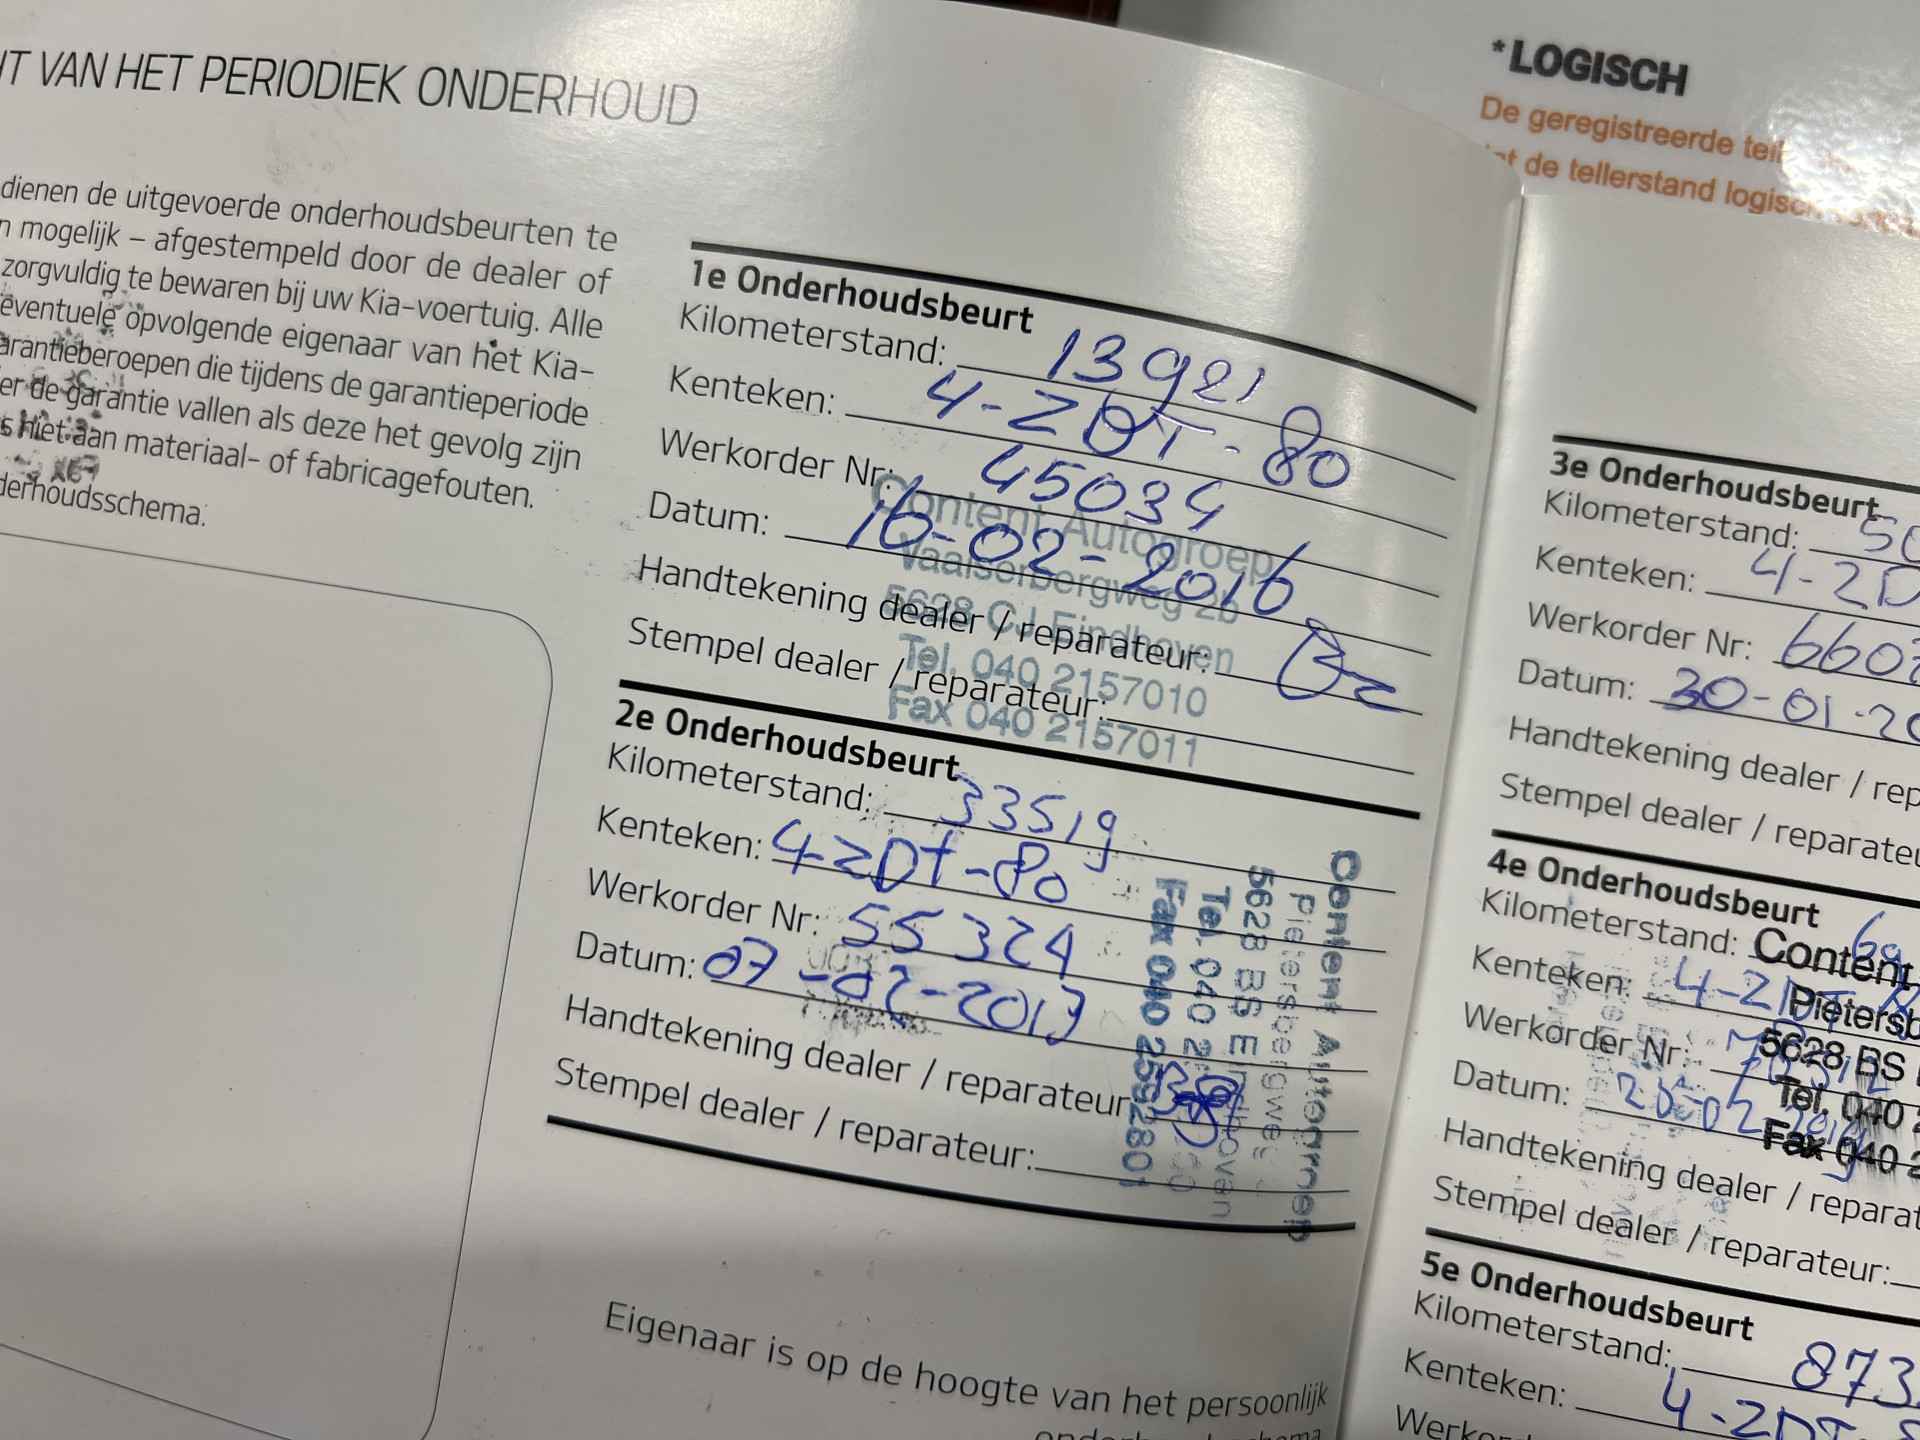 VAN HET PERIODIEK ONDERHOUD
dienen de uitgevoerde onderhoudsbeurten te
mogelijk – afgestempeld door de dealer of
zorgvuldig te bewaren bij uw Kia-voertuig. Alle
eventuele opvolgende eigenaar van het Kia-
garantieberoepen die tijdens de garantieperiode
de garantie vallen als deze het gevolg zijn
niet aan materiaal- of fabricagefouten.
1e Onderhoudsbeurt
Kilometerstand: 13921
Kenteken: 4-ZDT-80
Werkorder Nr: 45034
Datum: 16-02-2016
Handtekening dealer / reparateur:
Stempel dealer / reparateur:
Content Autogroep
Vaalserbergweg 2b
5628 CJ Eindhoven
Tel. 040 2157010
Fax 040 2157011
2e Onderhoudsbeurt
Kilometerstand: 33519
Kenteken: 4-ZDT-80
Werkorder Nr: 55324
Datum: 07-02-2017
Handtekening dealer / reparateur
Stempel dealer / reparateur:
Content Autogroep
Pietersbergweg
5628 BS Eindhoven
Tel. 040 2
Fax 040 2592801
Eigenaar is op de hoogte van het persoonlijk
*LOGISCH
De geregistreerde
de tellerstand logisch
3e Onderhoudsbeurt
Kilometerstand: 50
Kenteken: 4-ZD
Werkorder Nr: 660
Datum: 30-01-20
Handtekening dealer / rep
Stempel dealer / reparateu
4e Onderhoudsbeurt
Kilometerstand: 69
Kenteken: 4-ZDT
Werkorder Nr:
Datum:
Handtekening dealer / reparat
Stempel dealer / reparateur:
Content
Pietersb
5628 BS
Tel. 040 2
Fax 040 2
5e Onderhoudsbeurt
Kilometerstand: 873
Kenteken: 4-ZDT-8